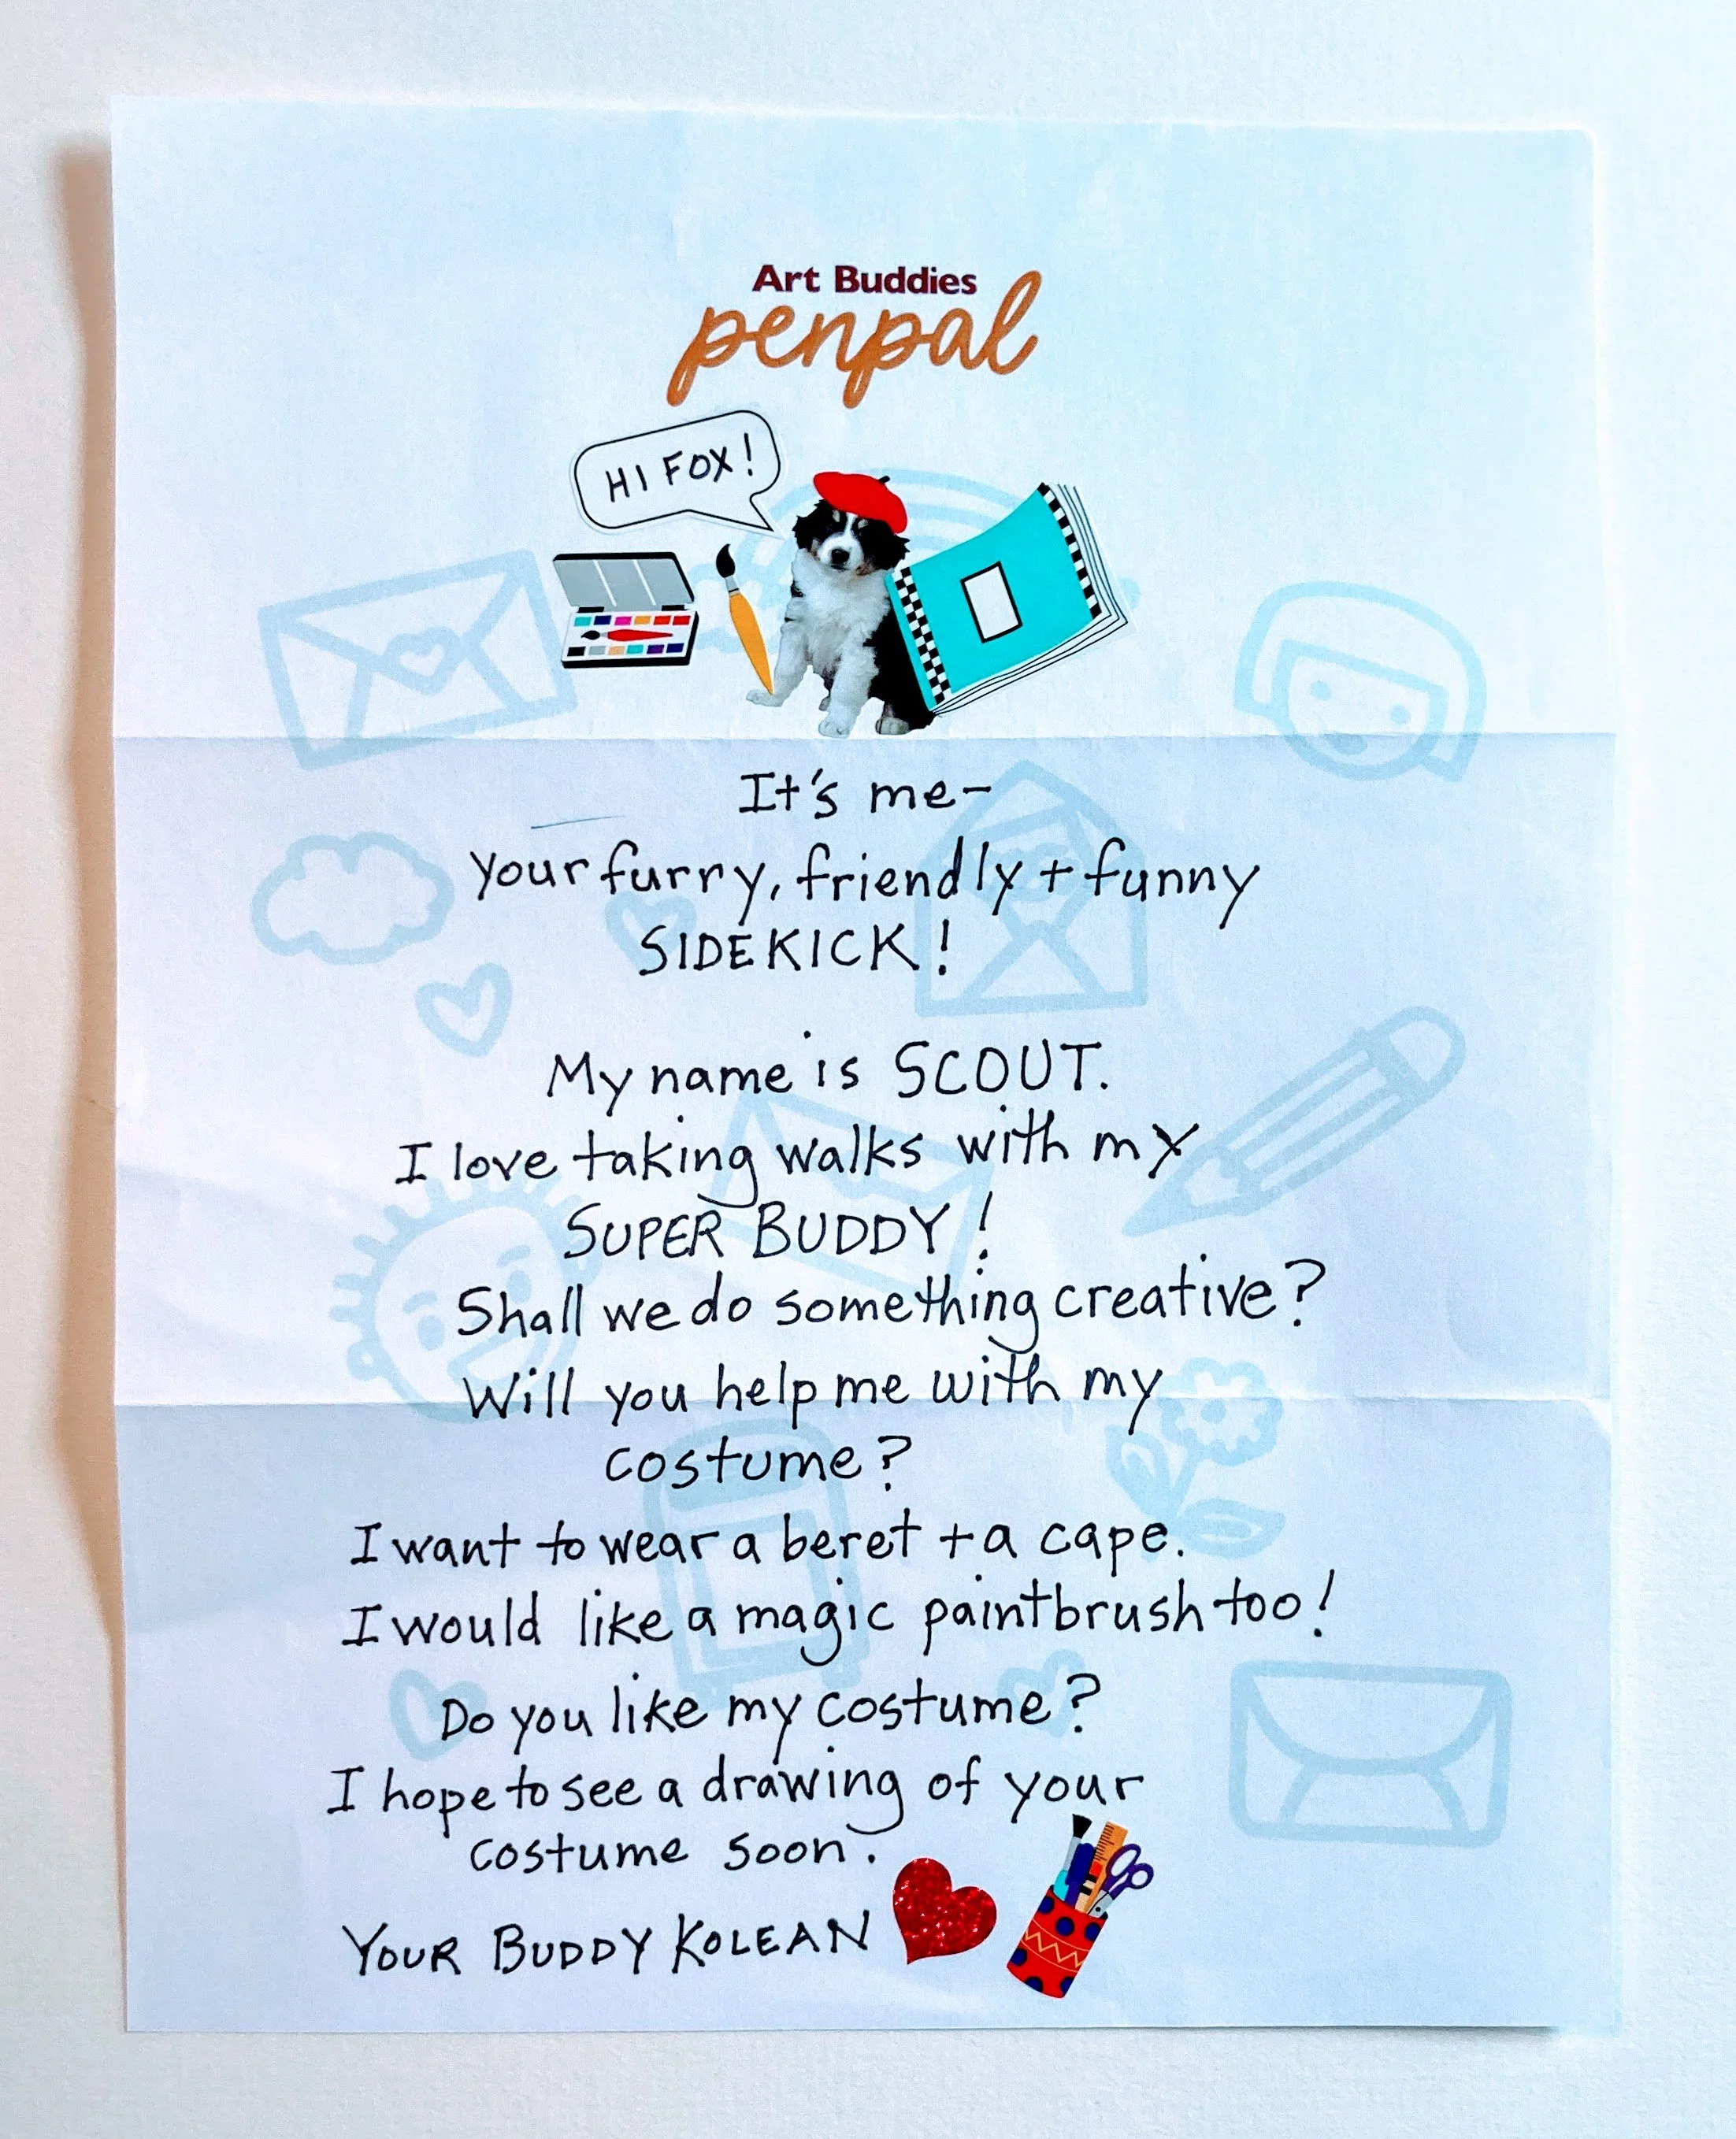 Art Buddies
penpal
HI FOX!
It's me-
Your furry, friendly + funny
SIDEKICK!
My name is SCOUT.
I love taking walks with my
SUPER BUDDY!
Shall we do something creative?
Will you help me with my
costume?
I want to wear a beret + a cape.
I would like a magic paintbrush too!
Do you like my costume?
I hope to see a drawing of your
costume soon.
YOUR BUDDY KOLEAN